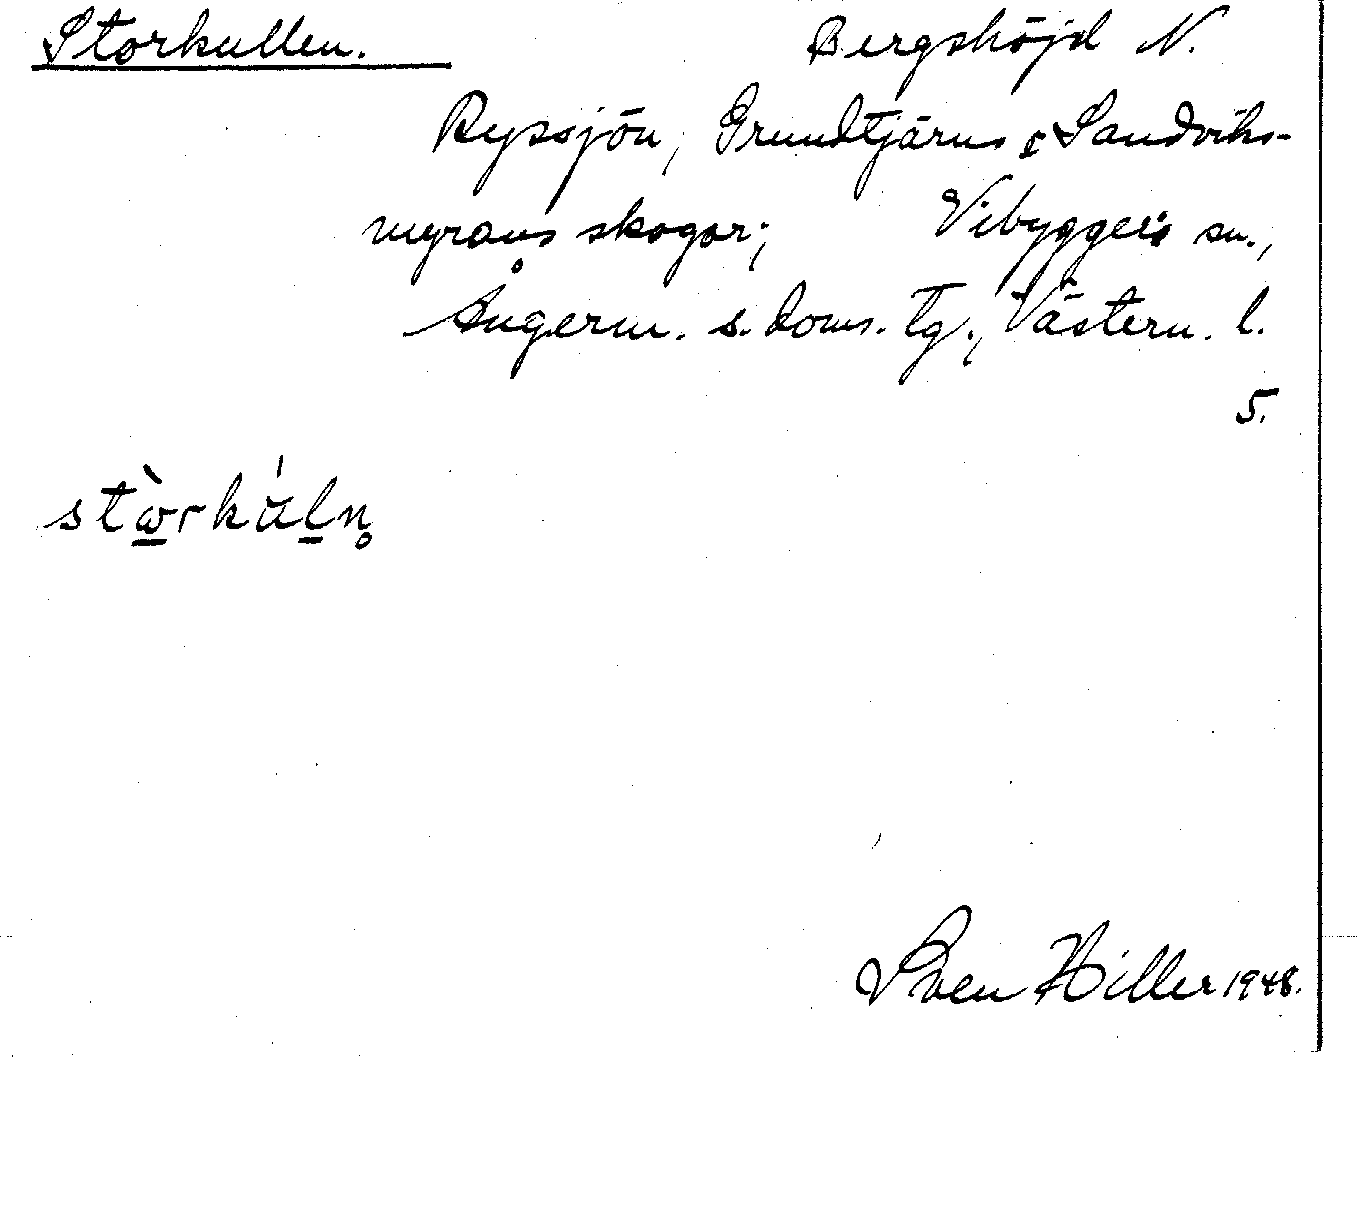 Storkullen. Bergshöjd N.
Ryssjön, Grundtjärns & Sandviks-
myrans skogar; Vibyggerå sn.,
Ångerm. s. doms. tg., Västern. l.
5.
Sven Hiller 1948.